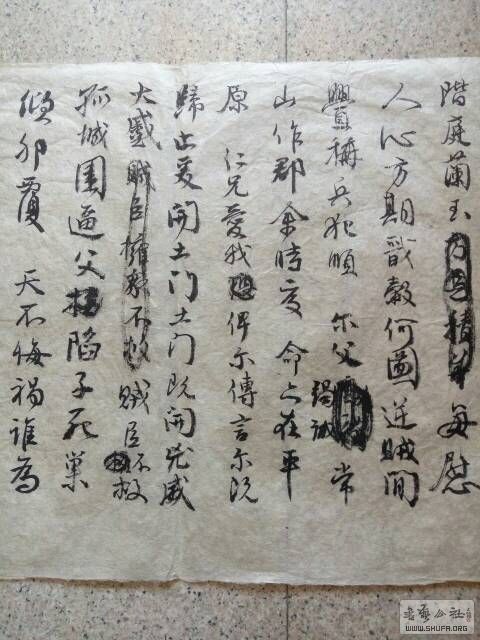 階庭蘭玉每慰
人心方期戩穀何圖逆賊間
舋稱兵犯順 尔父竭誠常
山作郡余時受 命亦在平
原 仁兄愛我俾尔傳言尔既
歸止爰開土门土门既開凶威
大蹙賊臣擁衆不救賊臣不救
孤城圍逼父陷子死巢
傾卵覆 天不悔禍誰為
書藝公社
WWW.SHUFA.ORG